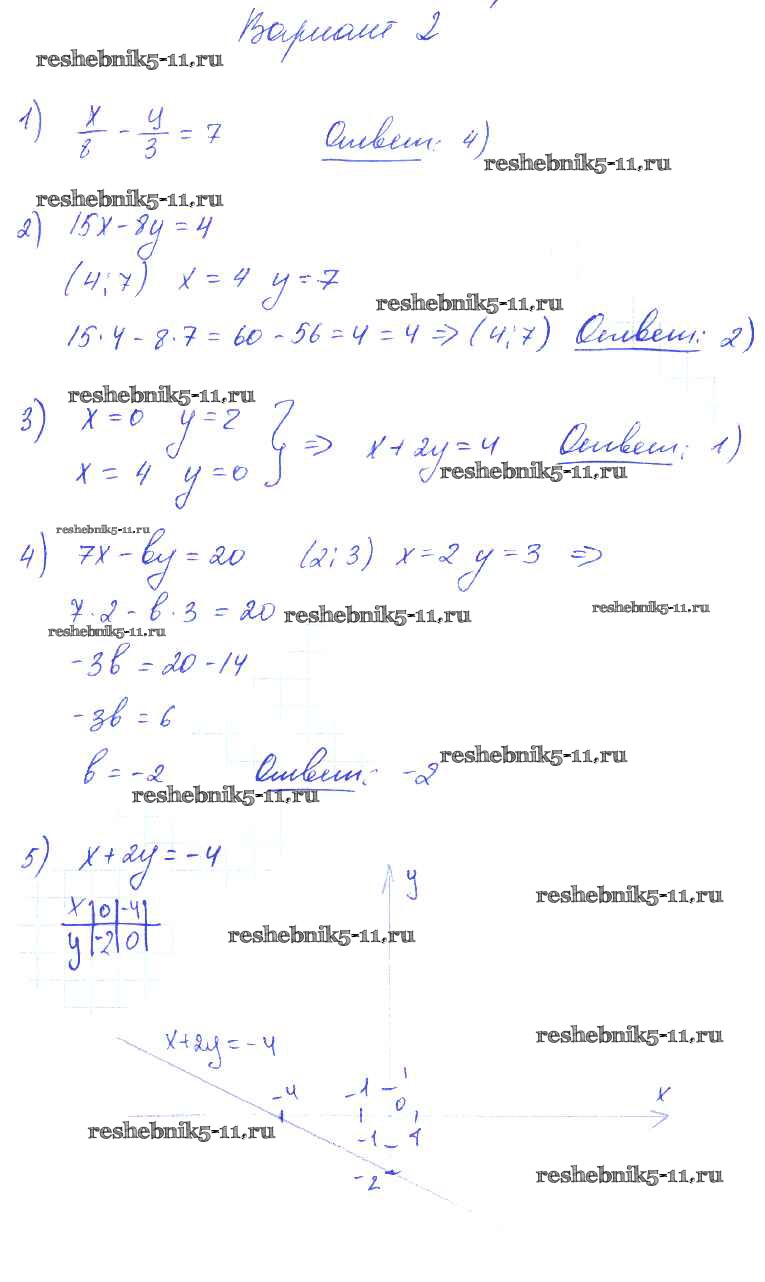 Вариант 2
reshebnik5-11.ru
1) x/8 - y/3 = 7 Ответ: 4)
reshebnik5-11.ru
reshebnik5-11.ru
2) 15x - 8y = 4
(4; 7) x = 4 y = 7
reshebnik5-11.ru
15·4 - 8·7 = 60 - 56 = 4 = 4 => (4; 7) Ответ: 2)
reshebnik5-11.ru
3) x = 0 y = 2
x = 4 y = 0 } => x + 2y = 4 Ответ: 1)
reshebnik5-11.ru
reshebnik5-11.ru
4) 7x - by = 20 (2; 3) x = 2 y = 3 =>
7·2 - b·3 = 20 reshebnik5-11.ru reshebnik5-11.ru
reshebnik5-11.ru
-3b = 20 - 14
-3b = 6
reshebnik5-11.ru
b = -2 Ответ: -2
reshebnik5-11.ru
5) x + 2y = -4
y
reshebnik5-11.ru
x 0 -4
y -2 0
reshebnik5-11.ru
reshebnik5-11.ru
x + 2y = -4
-4 -1 1
0 x
reshebnik5-11.ru
-1 1
-2
reshebnik5-11.ru